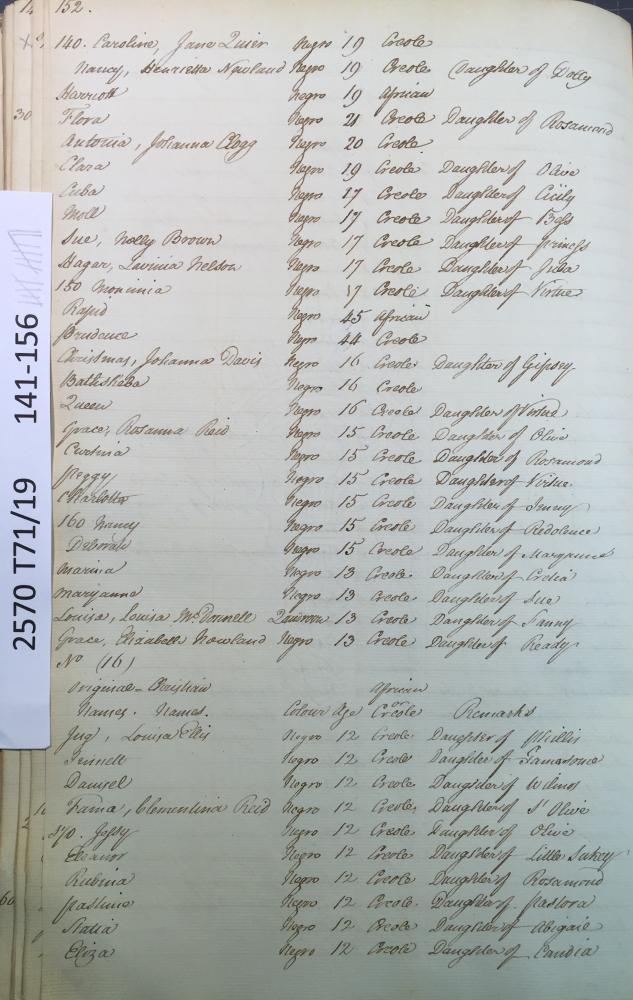 152.
140. Caroline, Jane Quier Negro 19 Creole
Nancy, Henrietta Newland Negro 19 Creole Daughter of Dolly
Harriott Negro 19 African
30
Flora Negro 21 Creole Daughter of Rosamond
Antonia, Johanna Clogg Negro 20 Creole
Clara Negro 19 Creole Daughter of Olive
Cuba Negro 17 Creole Daughter of Cicily
Moll Negro 17 Creole Daughter of Bess
Sue, Molly Brown Negro 17 Creole Daughter of Princess
Hagar, Lavinia Nelson Negro 17 Creole Daughter of Juba
150 Monimia Negro 17 Creole Daughter of Virtue
Rapid Negro 45 African
Prudence Negro 44 Creole
Christmas, Johanna Davis Negro 16 Creole Daughter of Gipsey
Bathsheba Negro 16 Creole
Queen Negro 16 Creole Daughter of Virtue
Grace, Rosanna Reid Negro 15 Creole Daughter of Olive
Negro 15 Creole Daughter of Rosamond
Peggy Negro 15 Creole Daughter of Virtue
Charlotte Negro 15 Creole Daughter of Jenny
160 Nancy Negro 15 Creole Daughter of Redolence
Deborah Negro 15 Creole Daughter of
Marina Negro 13 Creole Daughter of Cretia
Maryanne Negro 13 Creole Daughter of Sue
Louisa, Louisa McDonnell Quadroon 13 Creole Daughter of Fanny
Grace, Elizabeth Nowland Negro 13 Creole Daughter of Ready
No (16)
Original - Christian African
Names. Names. Colour Age or Creole Remarks
Jug, Louisa Ellis Negro 12 Creole Daughter of Phillis
Negro 12 Creole Daughter of
Damsel Negro 12 Creole Daughter of
Fama, Clementina Reid Negro 12 Creole Daughter of St Olive
170. Jessy Negro 12 Creole Daughter of Olive
Eleanor Negro 12 Creole Daughter of Little Sukey
Rubina Negro 12 Creole Daughter of Rosamond
60
Pastime Negro 12 Creole Daughter of Pastora
Statia Negro 12 Creole Daughter of Abigail
Eliza Negro 12 Creole Daughter of Candia
2570 T71/19 141-156